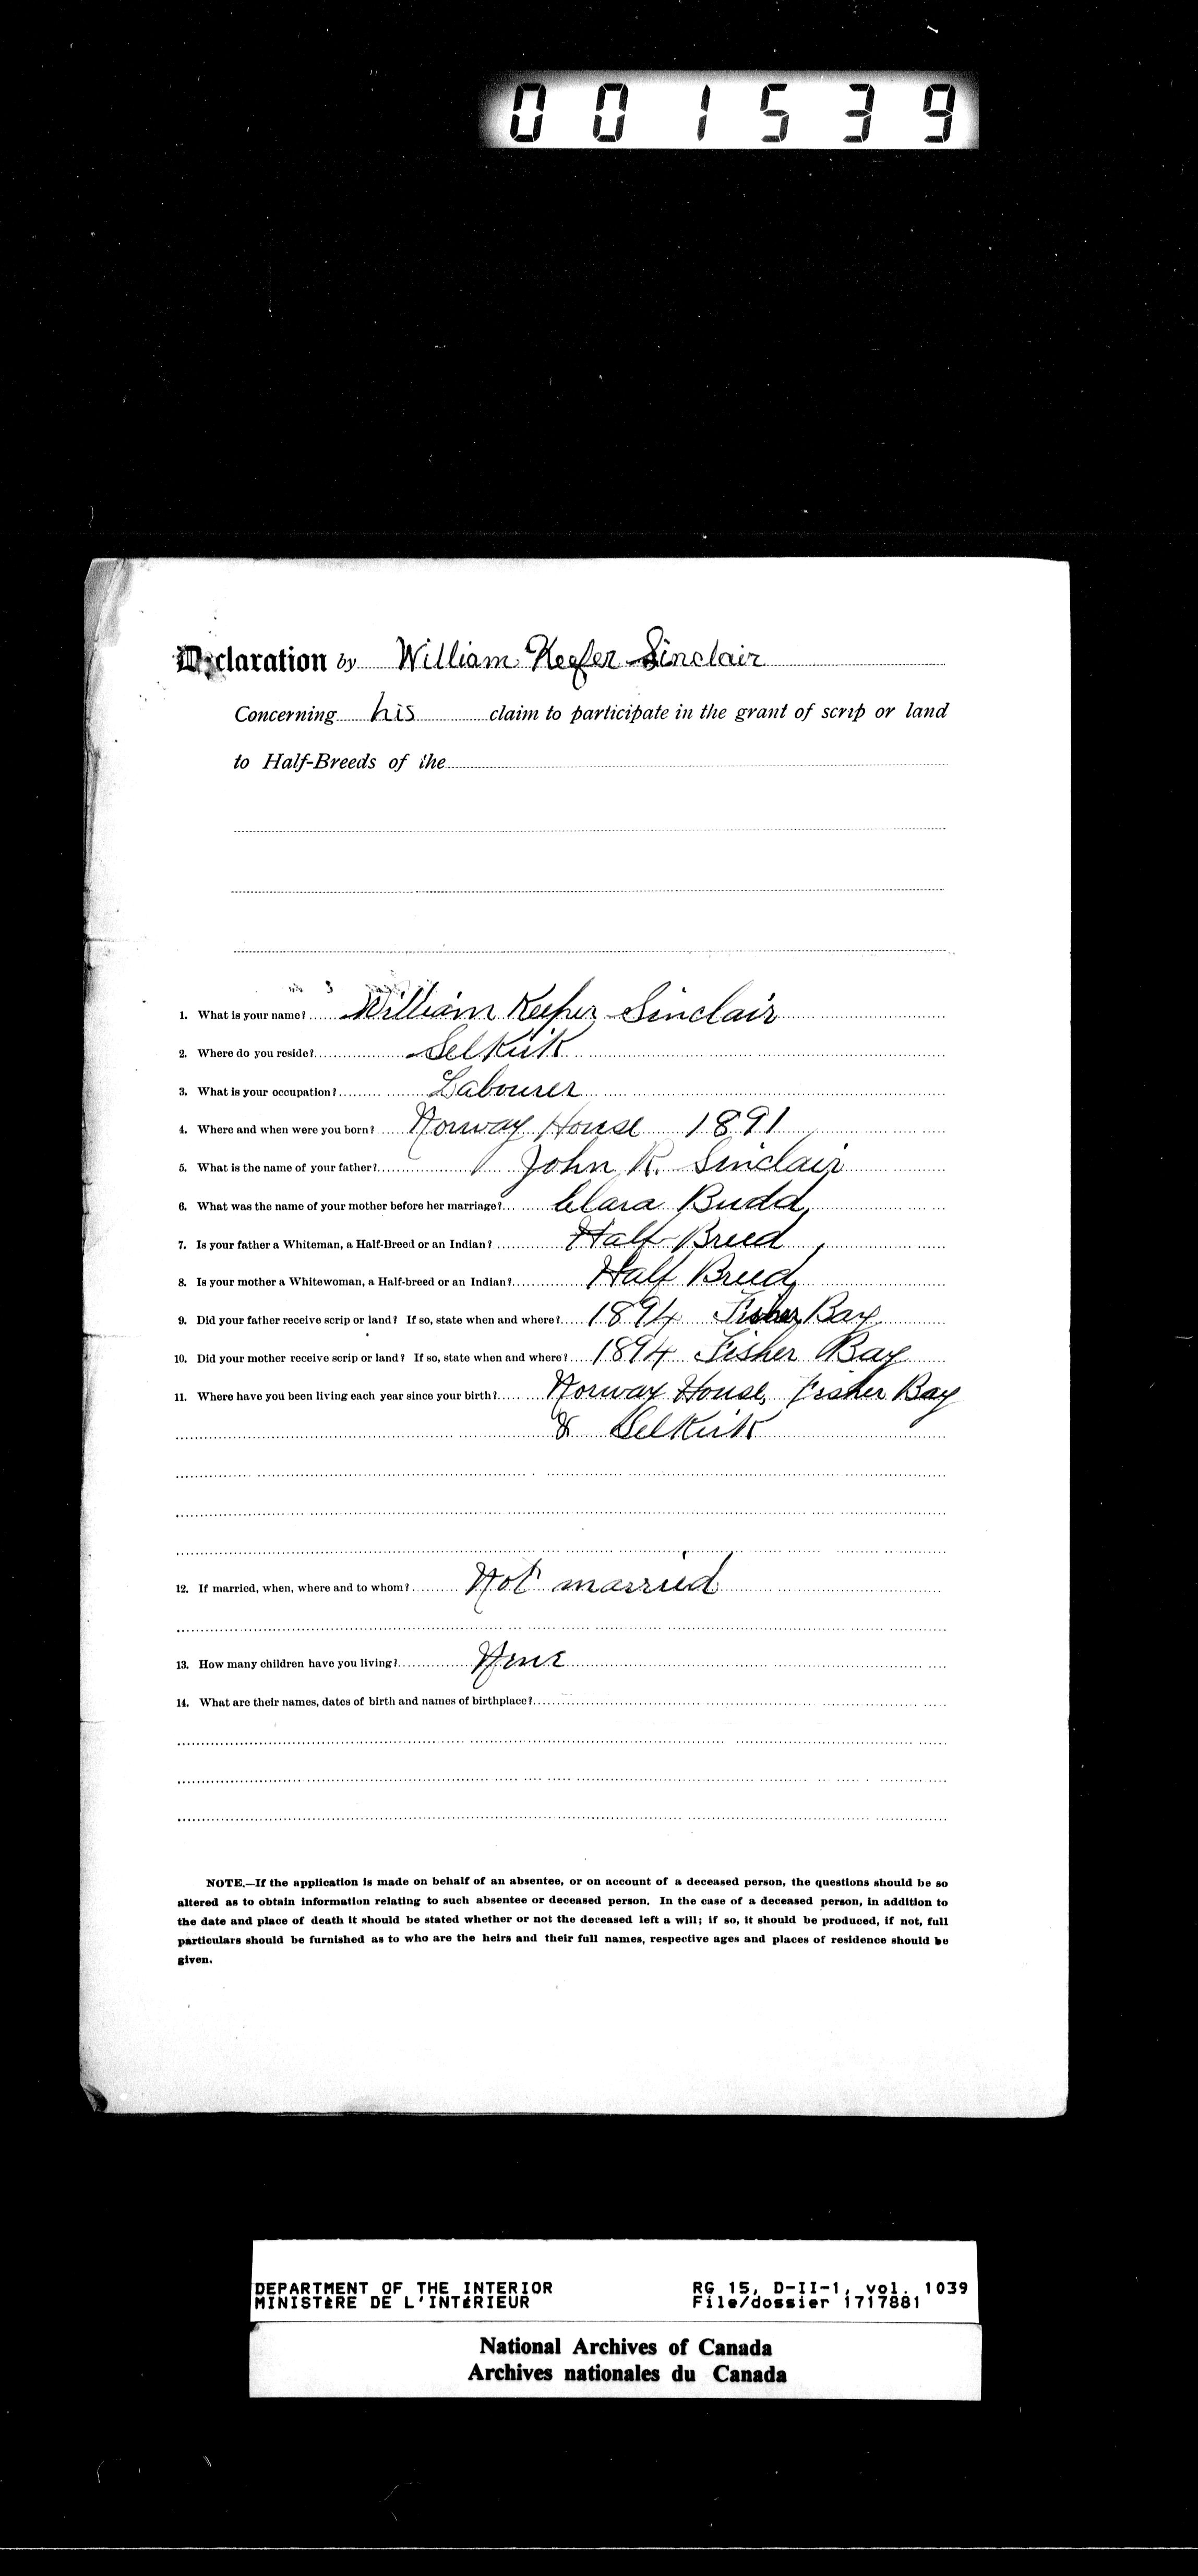 001539
Declaration by William Keefer Sinclair
Concerning his claim to participate in the grant of scrip or land
to Half-Breeds of the
1. What is your name? William Keefer Sinclair
2. Where do you reside? Selkirk
3. What is your occupation? Labourer
4. Where and when were you born? Norway House 1891
5. What is the name of your father? John R. Sinclair
6. What was the name of your mother before her marriage? Clara Budd
7. Is your father a Whiteman, a Half-Breed or an Indian? Half-Breed
8. Is your mother a Whitewoman, a Half-breed or an Indian? Half Breed
9. Did your father receive scrip or land? If so, state when and where? 1894 Fisher Bay
10. Did your mother receive scrip or land? If so, state when and where? 1894 Fisher Bay
11. Where have you been living each year since your birth? Norway House, Fisher Bay
& Selkirk
12. If married, when, where and to whom? Not married
13. How many children have you living? None
14. What are their names, dates of birth and names of birthplace?
NOTE.—If the application is made on behalf of an absentee, or on account of a deceased person, the questions should be so
altered as to obtain information relating to such absentee or deceased person. In the case of a deceased person, in addition to
the date and place of death it should be stated whether or not the deceased left a will; if so, it should be produced, if not, full
particulars should be furnished as to who are the heirs and their full names, respective ages and places of residence should be
given.
DEPARTMENT OF THE INTERIOR RG 15, D-II-1, vol. 1039
MINISTÈRE DE L'INTÉRIEUR File/dossier 1717881
National Archives of Canada
Archives nationales du Canada